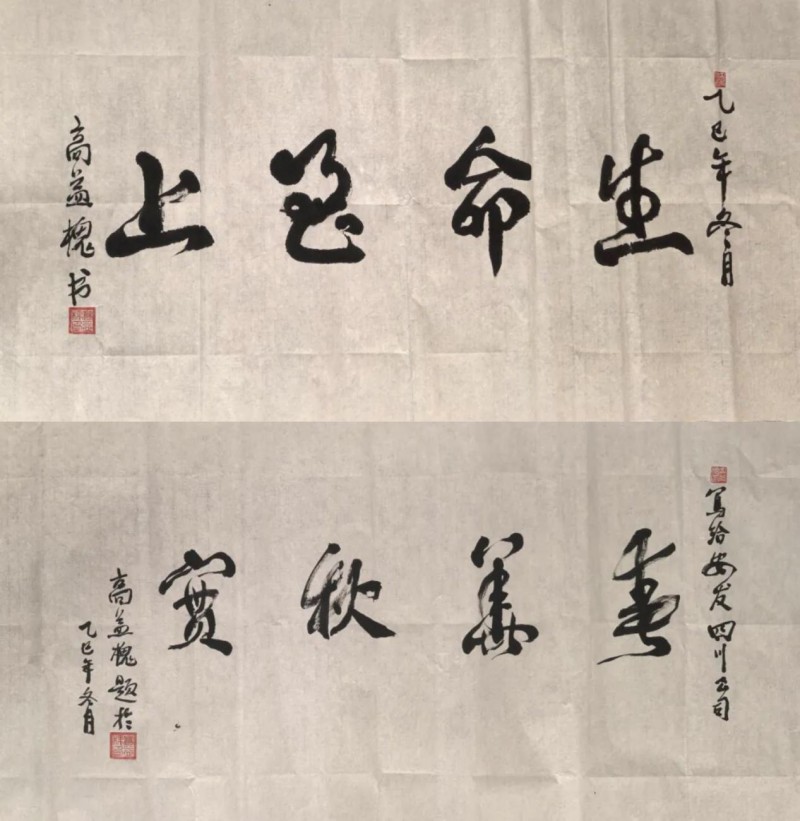 乙巳年冬月
生命至上
高益槐书
寫给安发四川公司
春華秋實
高益槐题於
乙巳年冬月